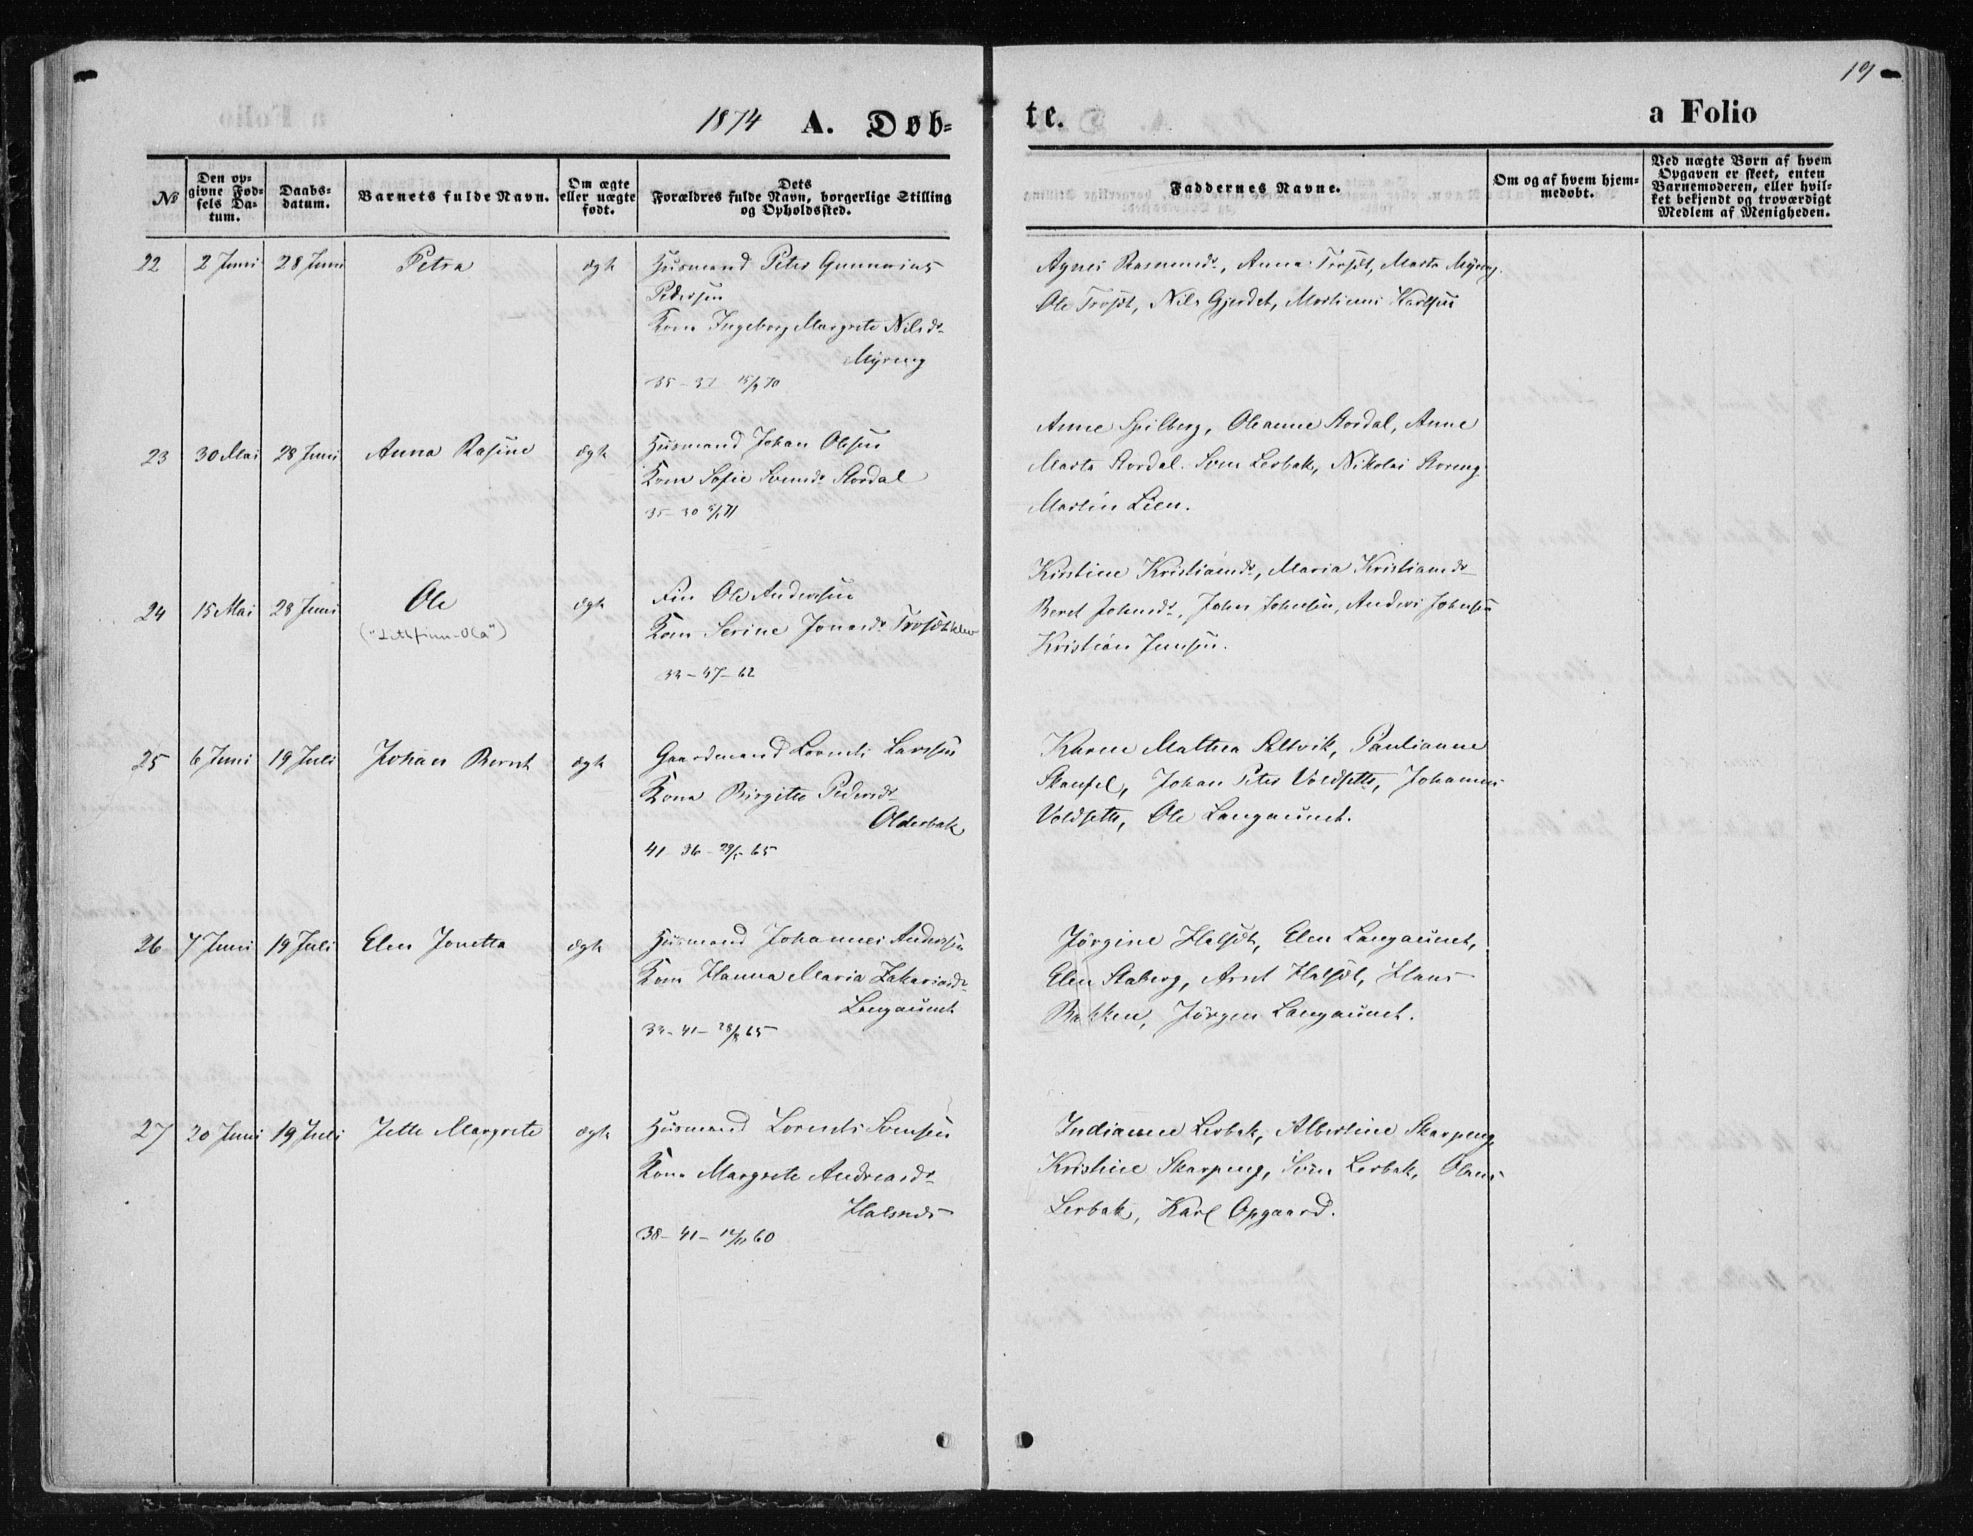 19
1874 A. Døb=
te.
a Folio
№
Den op=
givne Fød=
sels Da=
tum.
Daabs=
datum.
Barnets fulde Navn.
Om ægte
eller uægte
født.
Dets
Forældres fulde Navn, borgerlige Stilling
og Opholdssted.
Faddernes Navne.
Om og af hvem hjem=
medøbt.
Ved uægte Børn af hvem
Opgaven er skeet, enten
Barnemoderen, eller hvil=
ket bekjendt og troværdigt
Medlem af Menigheden.
22 2 Juni 28 Juni Petra ægte Husmand Peter Gunnarius
Pedersen
Kone Ingeborg Margrete Nilsdr
Myreng
35-37
Agnes Rasmusdr, Anna Trosdt, Marta Myreng
Ole Trosdt, Nils Gjerdet, Martinus Karlsen
23 30 Mai 28 Juni Anna Rasine ægte Husmand Johan Olsen
Kone Sofie Svendsdr Stordal
35-30
Anne Spilberg, Oleanne Stordal, Anne
Marta Stordal. Sven Lerbak, Nikolai Storeng
Martin Lien.
24 15 Mai 28 Juni Ole ægte Fin Ole Andersen
("Litlfinn-Ola")
Kone Serine Jonasdr Trosdt
62
Kirstine Kristiansdr, Maria Kristiansdr
Beret Johnsdr, John Johnsen, Anders Johnsen
Kristian Jensen.
25 6 Juni 19 Juli Johan Bernt ægte Gaardmand Lorents Larsen
Kone Birgitte Pedersdr
Olderbak
41-36- 29/5 65
Karen Mathea Saltvik, Paulianne
Skansel, Johan Peter Voldsette, Johannes
Voldsette, Ole Langaunet.
26 7 Juni 19 Juli Elen Jonetta ægte Husmand Johannes Andersen
Kone Hanna Maria Zakariasdr
Langaunet
41- 28/8 65
Jørgine Halsdt, Elen Langaunet,
Elen Staberg, Arnt Halsdt, Hans
Bakken, Jørgen Langaunet.
27 20 Juni 19 Juli Jette Margrete ægte Husmand Lorents Svensen
Kone Margrete Andreasdr
Halsnes
38-41- 60
Indianne Lerbak, Albertine Skarpeng,
Kristine Skarpeng, Sven Lerbak, Olaus
Lerbak, Karl Opgaard.